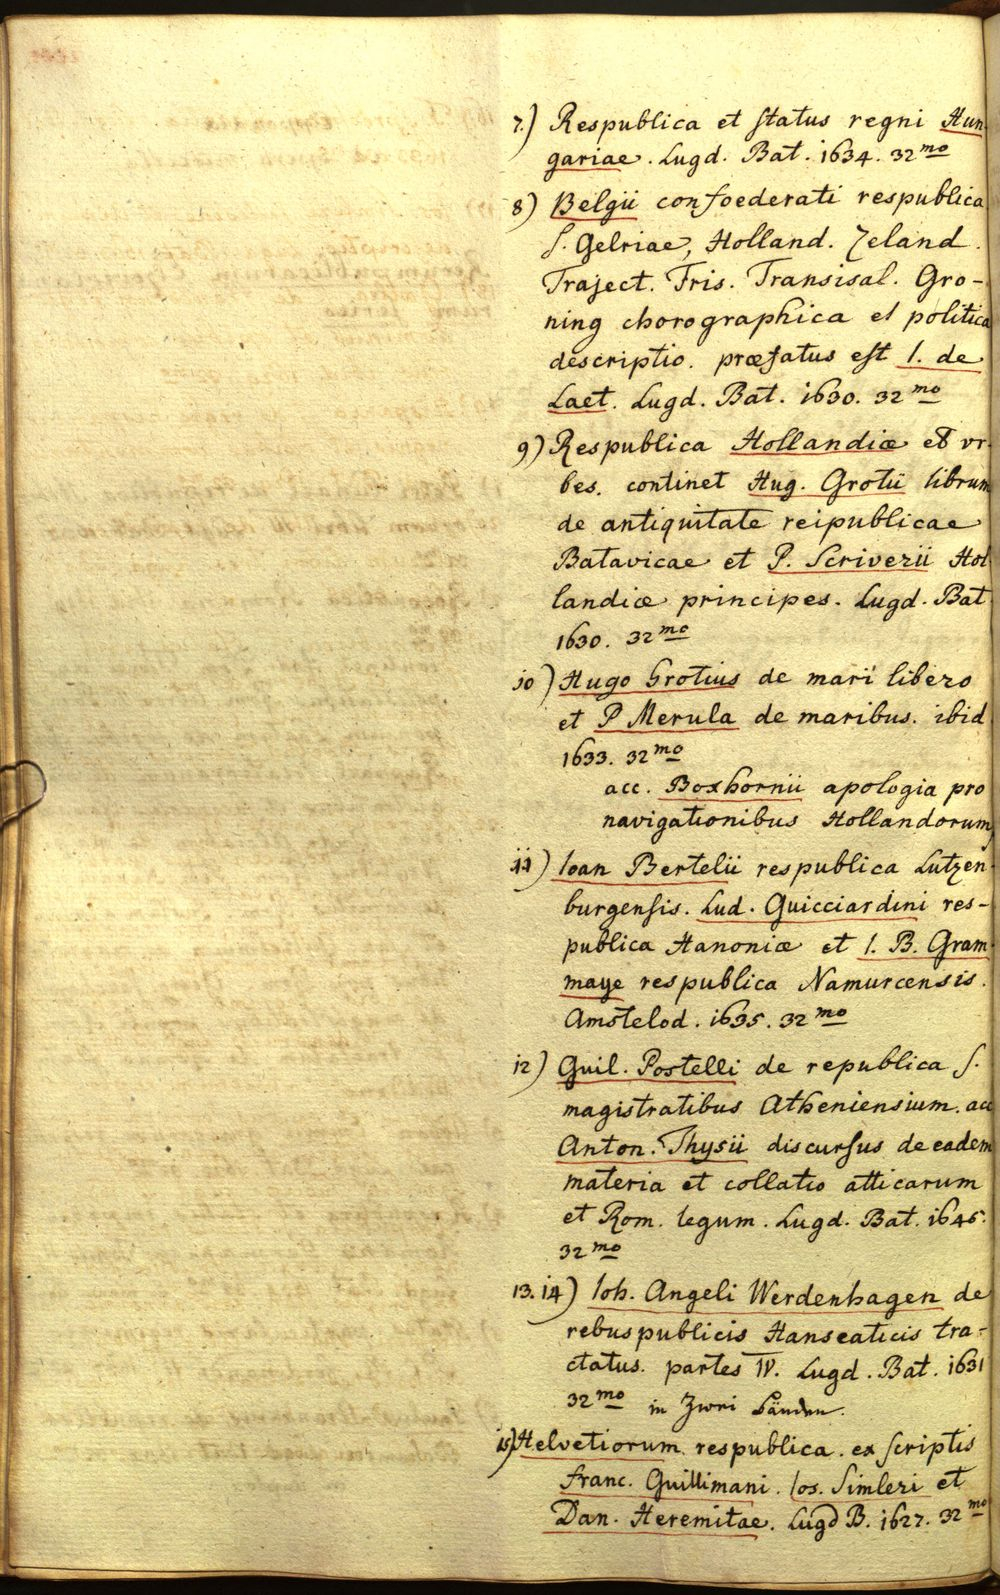 7.) Respublica et ſtatus regni Hun
gariae. Lugd. Bat. 1634. 32mo
8) Belgii confoederati respublica
ſ. Gelriae, Holland. Zeland.
Traject. Fris. Transisal. Gro-
ning chorographica et politica
descriptio. præfatus eſt I. de
Laet. Lugd. Bat. 1630. 32mo
9) Respublica Hollandiæ et vr-
bes. continet Hug. Grotii librum
de antiquitate reipublicae
Batavicae et P. Scriverii Hol
landiæ principes. Lugd. Bat
1630. 32mo
10) Hugo Grotius de mari libero
et P Merula de maribus. ibid
1633. 32mo
acc. Boxhornii apologia pro
navigationibus Hollandorum
11) Ioan Bertelii respublica Lutzen-
burgenſis. Lud. Guicciardini res-
publica Hanoniæ et I. B. Gram-
maye respublica Namurcensis.
Amstelod. 1635. 32mo
12) Guil. Postelli de republica ſ.
magistratibus Atheniensium. acc
Anton. Thysii discurſus de eadem
materia et collatio atticarum
et Rom. legum. Lugd. Bat. 1645.
32mo
13. 14) Ioh. Angeli Werdenhagen de
rebuspublicis Hanseaticis tra-
ctatus. partes IV. Lugd. Bat. 1631
32mo in Zwei Bänden.
15) Helvetiorum respublica. ex ſcriptis
franc. Guillimani. Ios. Simleri et
Dan. Heremitae. Lugd B. 1627. 32mo